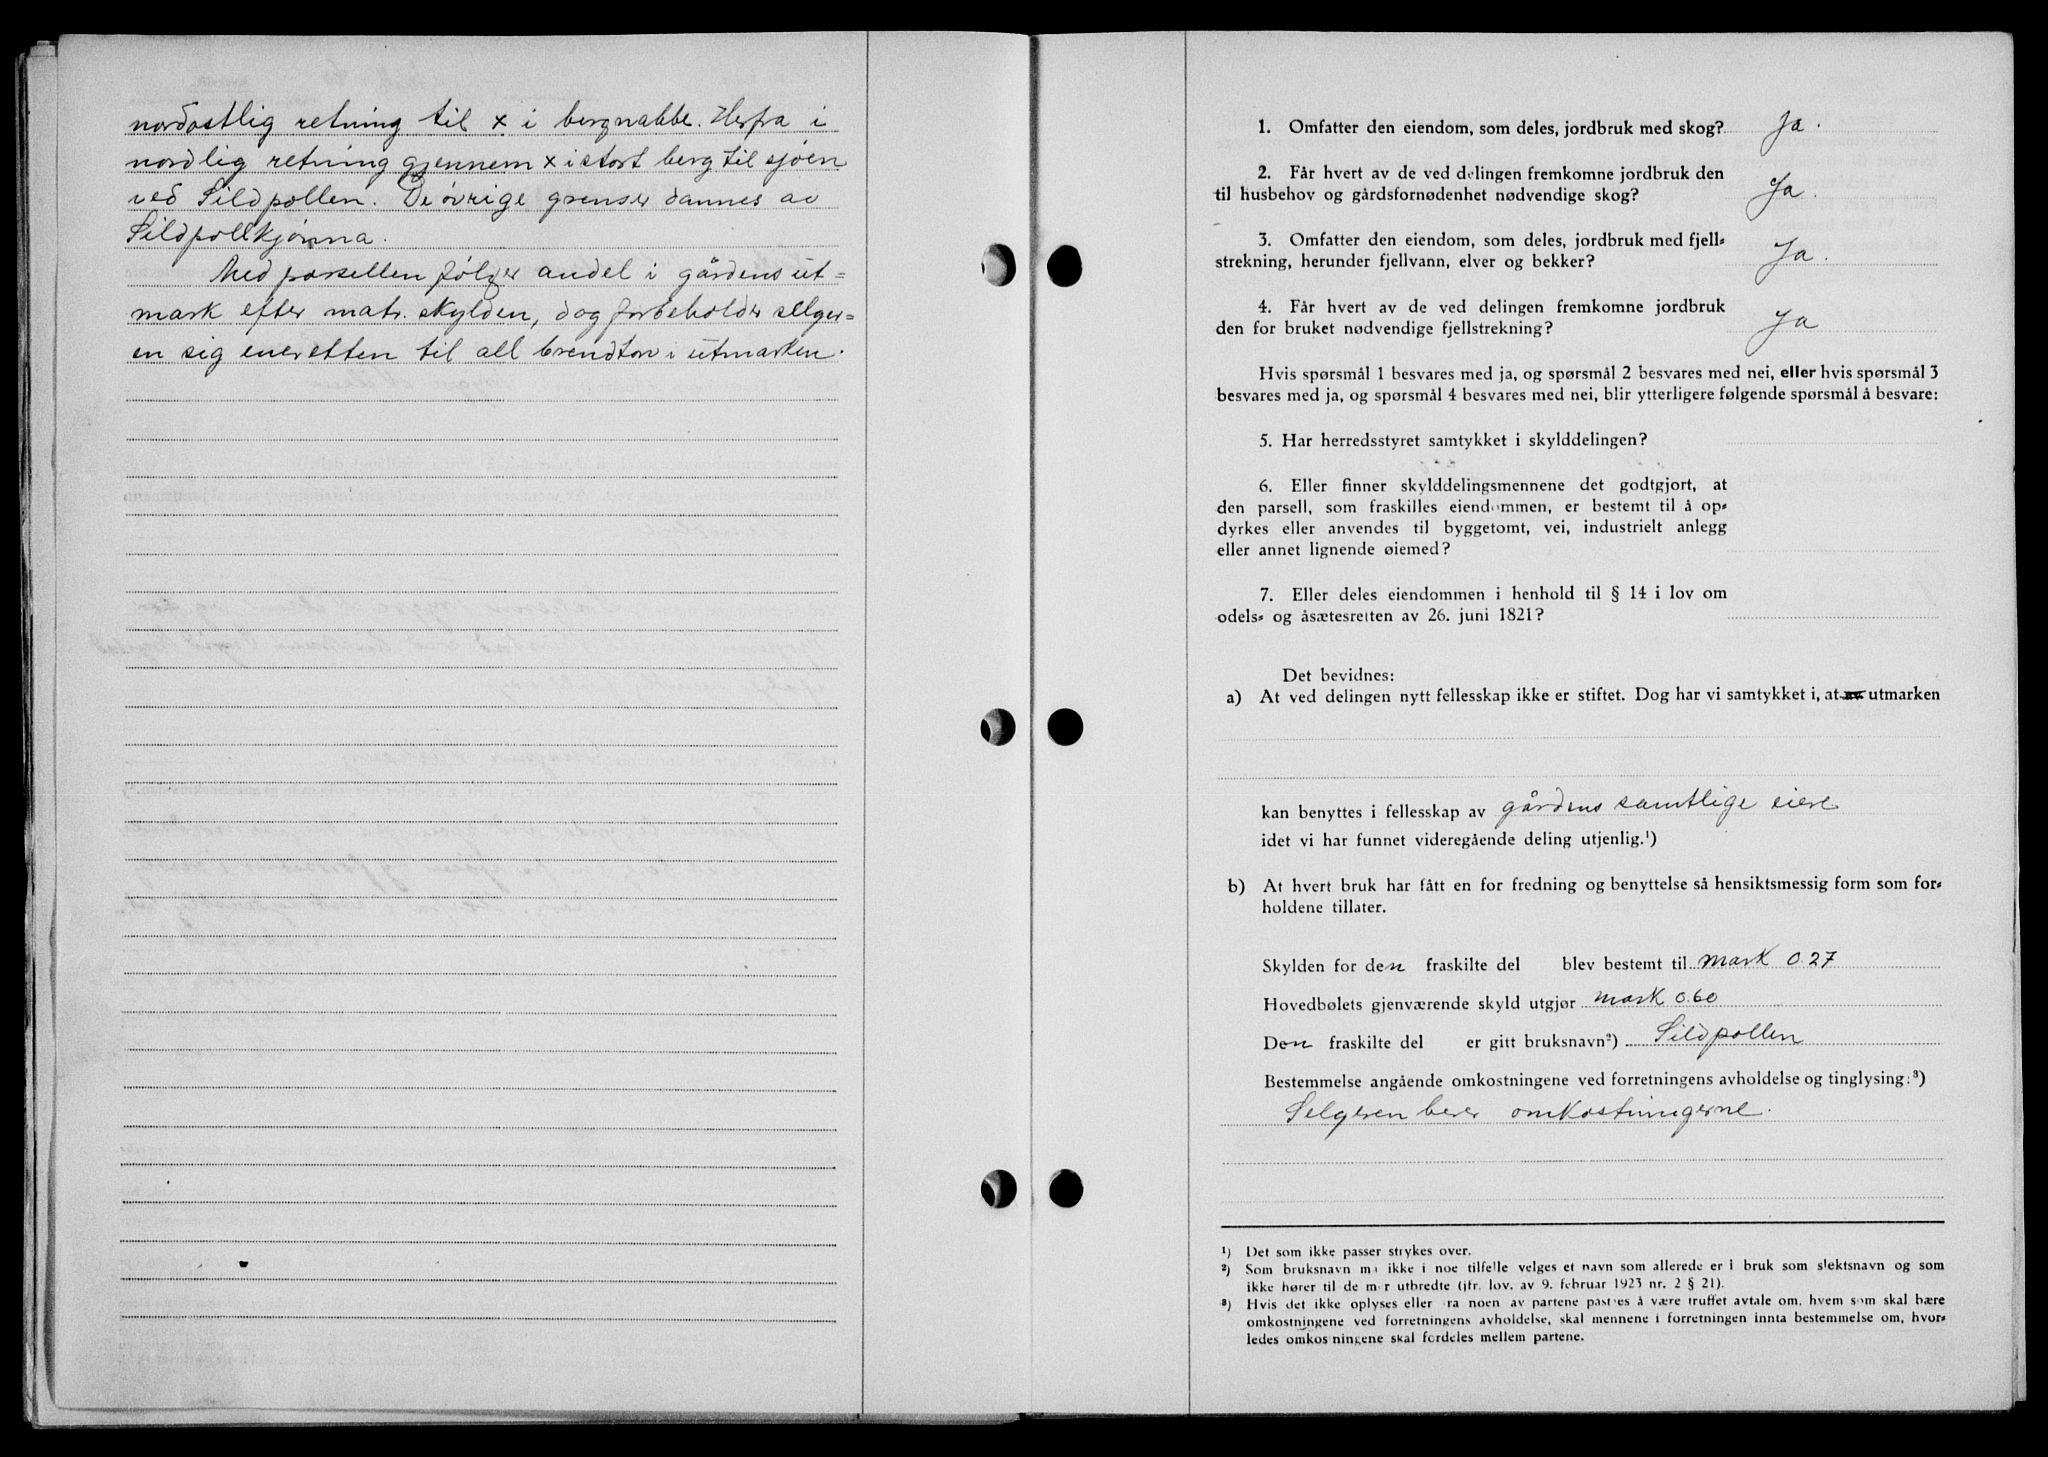 nordostlig retning til x i bergnabbe. Herfra i
nordlig retning gjennem x i stort berg til sjøen
ved Sildpollen. De øvrige grenser dannes av
Sildpollkjønna.
Med parsellen følger andel i gårdens ut-
mark efter matr. skylden, dog forbeholder selger-
en sig eneretten til all brendtorv i utmarken.
1. Omfatter den eiendom, som deles, jordbruk med skog? Ja.
2. Får hvert av de ved delingen fremkomne jordbruk den
til husbehov og gårdsfornødenhet nødvendige skog? Ja.
3. Omfatter den eiendom, som deles, jordbruk med fjell-
strekning, herunder fjellvann, elver og bekker? Ja.
4. Får hvert av de ved delingen fremkomne jordbruk
den for bruket nødvendige fjellstrekning? Ja
Hvis spørsmål 1 besvares med ja, og spørsmål 2 besvares med nei, eller hvis spørsmål 3
besvares med ja, og spørsmål 4 besvares med nei, blir ytterligere følgende spørsmål å besvare:
5. Har herredsstyret samtykket i skylddelingen?
6. Eller finner skylddelingsmennene det godtgjort, at
den parsell, som fraskilles eiendommen, er bestemt til å op-
dyrkes eller anvendes til byggetomt, vei, industrielt anlegg
eller annet lignende øiemed?
7. Eller deles eiendommen i henhold til § 14 i lov om
odels- og åsætesretten av 26. juni 1821?
Det bevidnes:
a) At ved delingen nytt fellesskap ikke er stiftet. Dog har vi samtykket i, at av utmarken
kan benyttes i fellesskap av gårdens samtlige eiere
idet vi har funnet videregående deling utjenlig.¹)
b) At hvert bruk har fått en for fredning og benyttelse så hensiktsmessig form som for-
holdene tillater.
Skylden for den fraskilte del blev bestemt til mark 0.27
Hovedbølets gjenværende skyld utgjør mark 0.60
Den fraskilte del er gitt bruksnavn²) Sildpollen
Bestemmelse angående omkostningene ved forretningens avholdelse og tinglysing:³)
Selgeren berer omkostningerne.
¹) Det som ikke passer strykes over.
²) Som bruksnavn må ikke i noe tilfelle velges et navn som allerede er i bruk som slektsnavn og som
ikke hører til de mer utbredte (jfr. lov. av 9. februar 1923 nr. 2 § 21).
³) Hvis det ikke oplyses eller fra noen av partene påstås å være truffet avtale om, hvem som skal bære
omkostningene ved forretningens avholdelse, skal mennene i forretningen innta bestemmelse om, hvor-
ledes omkostningene skal fordeles mellem partene.